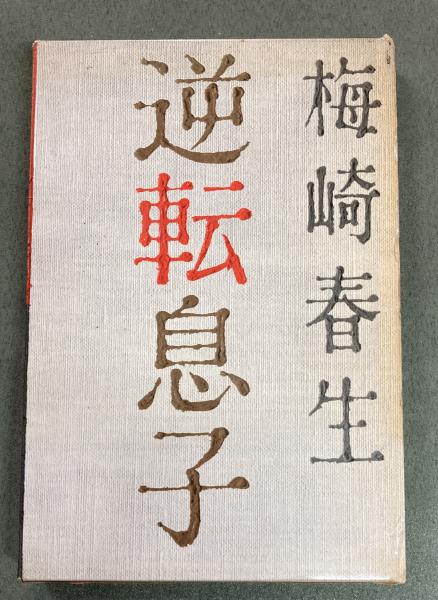 梅崎春生
逆転息子